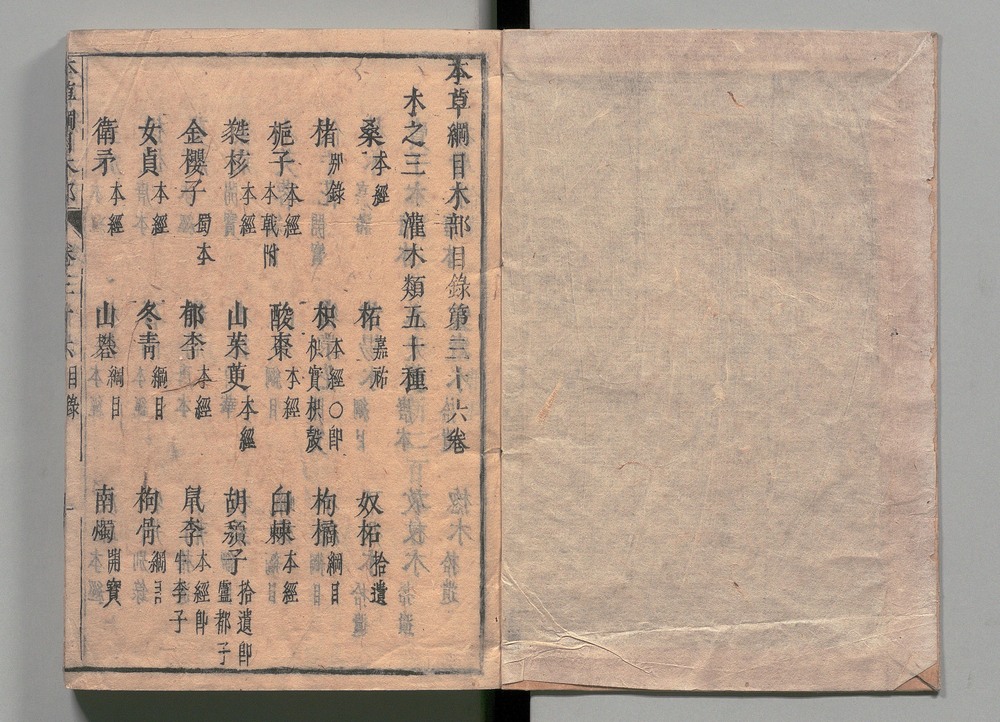 本草綱目木部目錄第三十六卷
木之三灌木類五十種
桑本經 柘嘉祐 奴柘拾遺
楮別錄 枳本經○即枳實枳殼 枸橘綱目
梔子本經木戟附 酸棗本經 白棘本經
蕤核本經 山茱萸本經 胡頹子拾遺即盧都子
金櫻子蜀本 郁李本經 鼠李本經即牛李子
女貞本經 冬青綱目 枸骨綱目
衛矛本經 山礬綱目 南燭開寶
本草綱目木部 卷三十六目錄